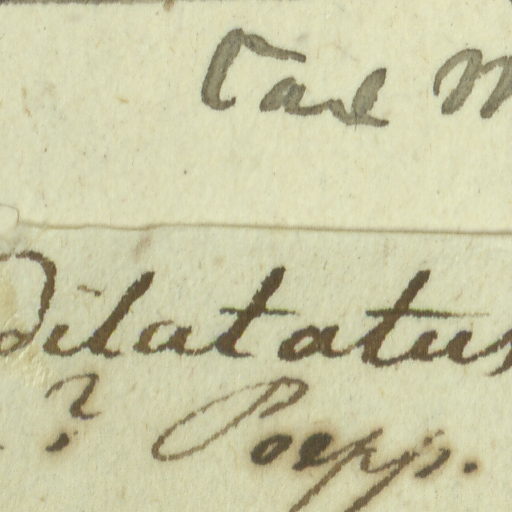 Carl M
dilatatus
? Poepp.